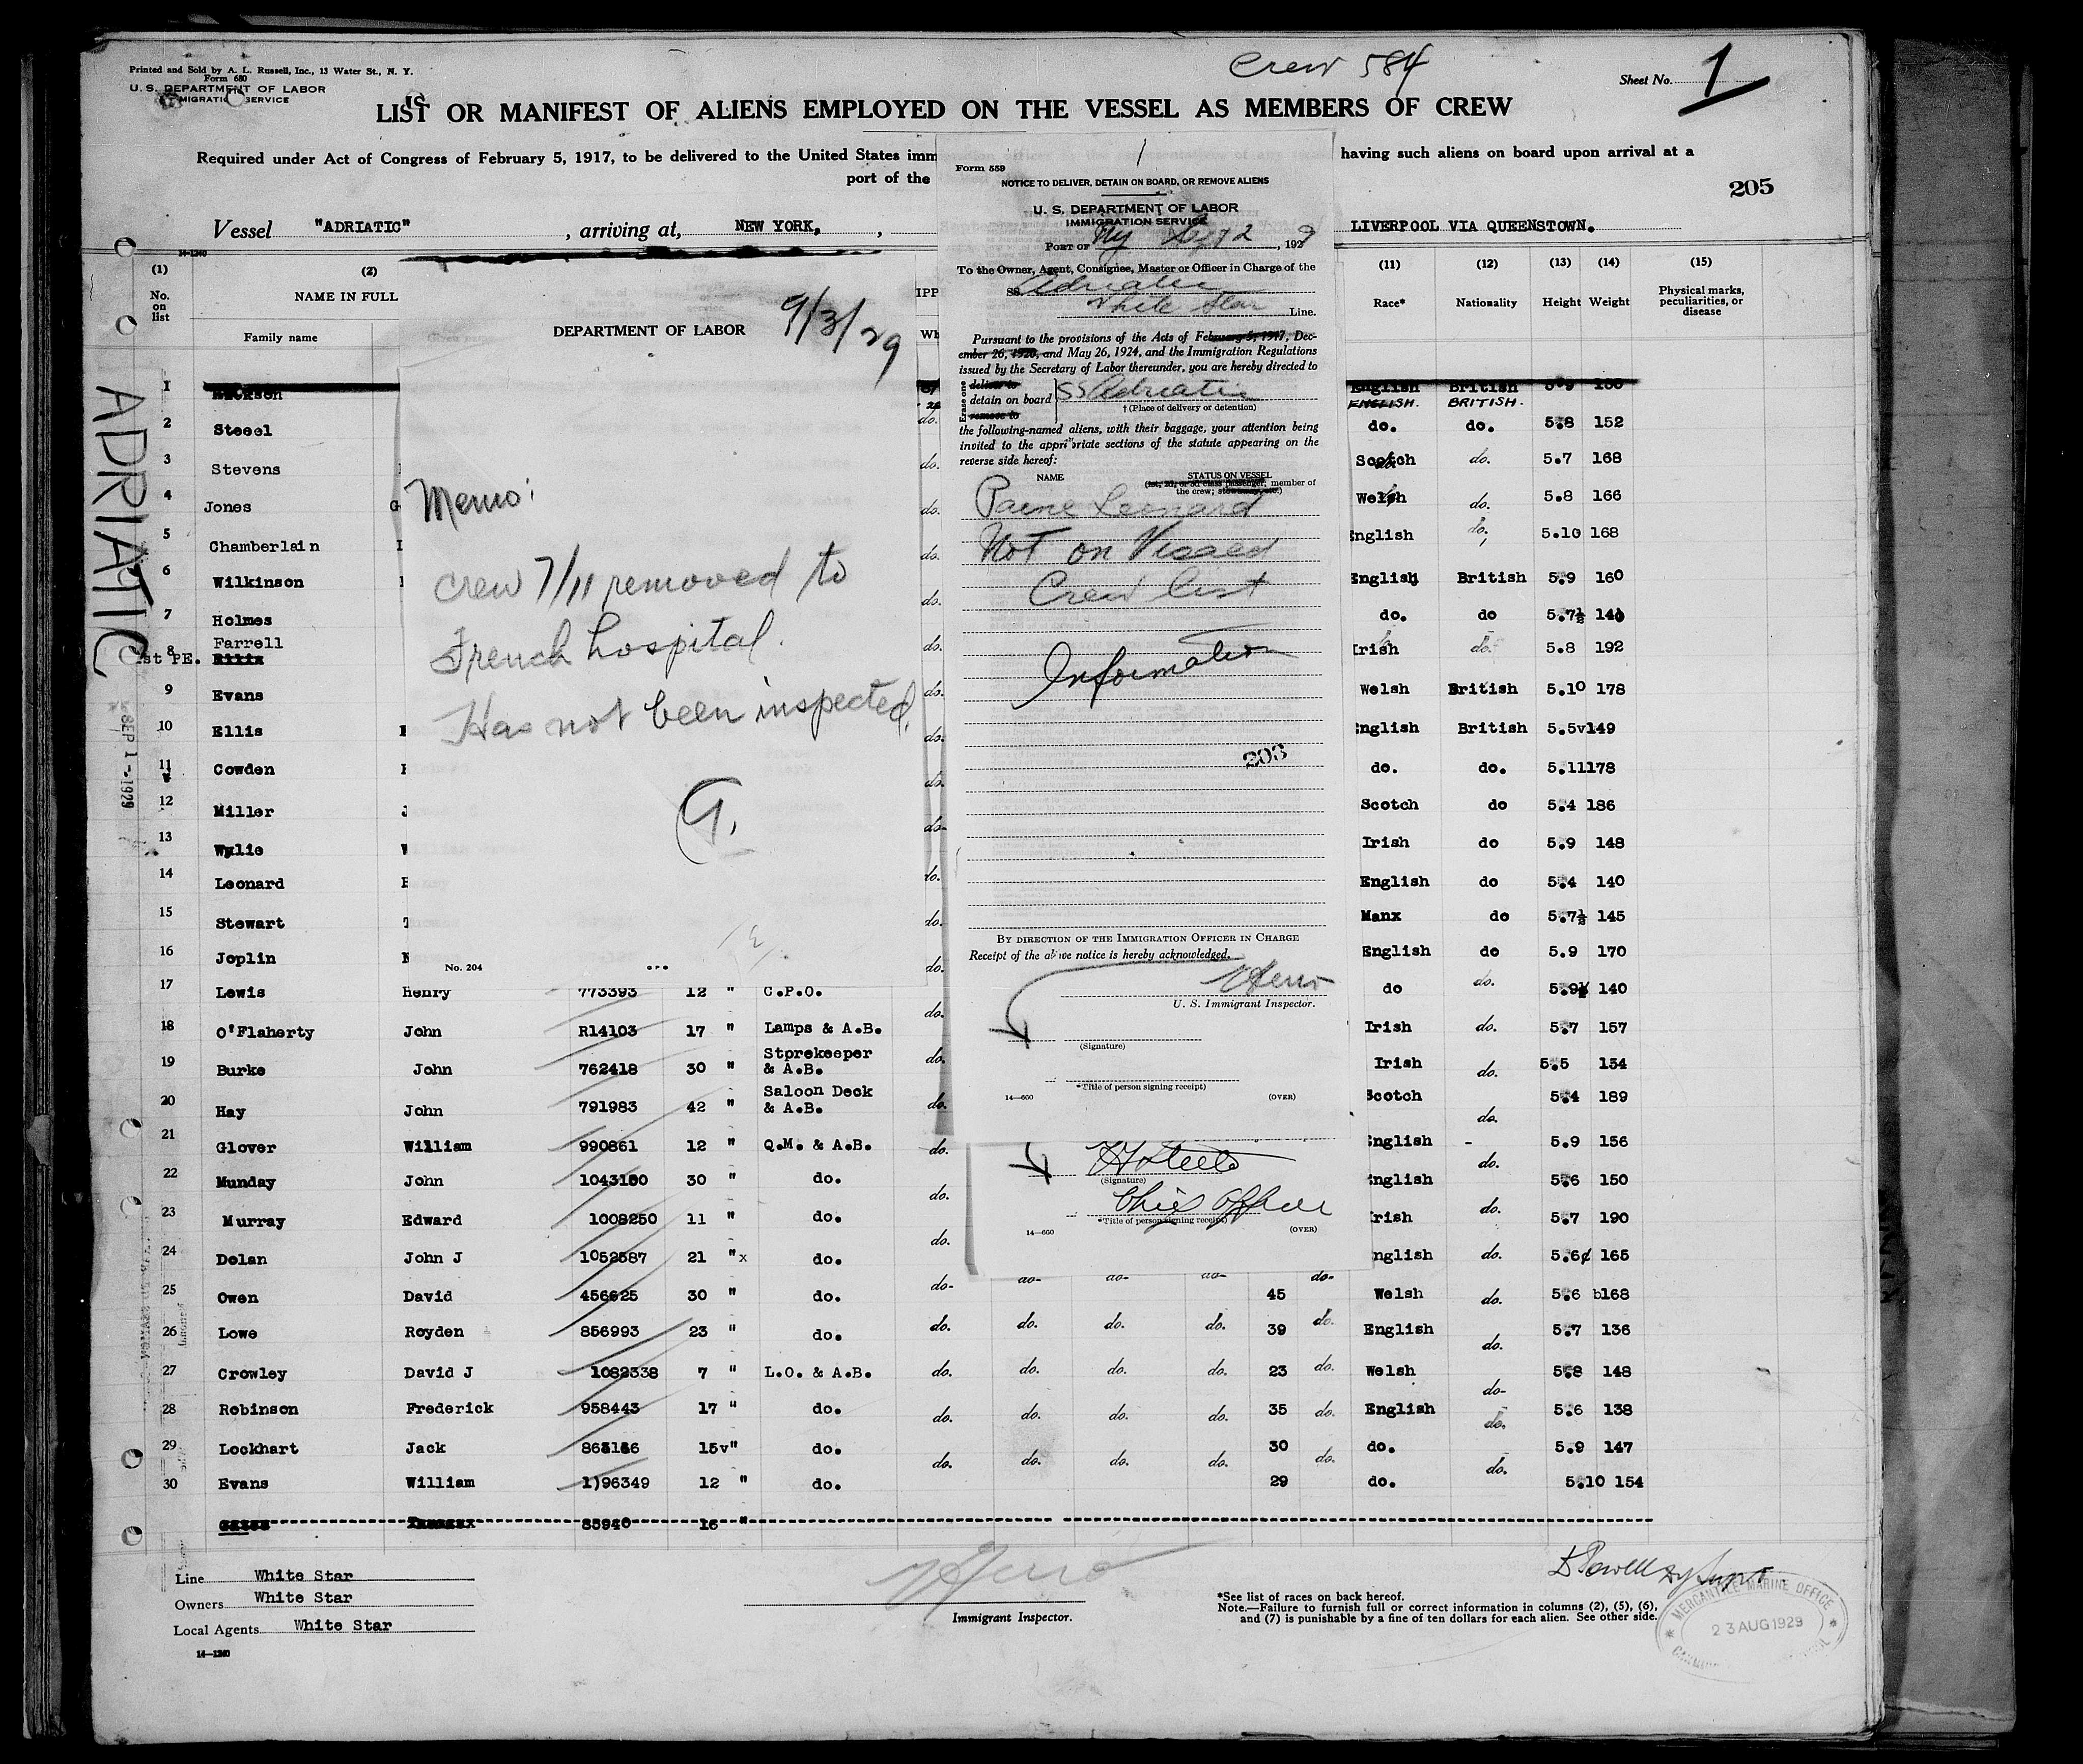 Printed and Sold by A. L. Russell, Inc., 13 Water St., N. Y.
Form 680
U. S. DEPARTMENT OF LABOR
IMMIGRATION SERVICE
Crew 584
Sheet No. 1
LIST OR MANIFEST OF ALIENS EMPLOYED ON THE VESSEL AS MEMBERS OF CREW
Required under Act of Congress of February 5, 1917, to be delivered to the United States imm
having such aliens on board upon arrival at a
port of the
205
Vessel "ADRIATIC" , arriving at, NEW YORK, ,
LIVERPOOL VIA QUEENSTOWN.
14-1240
(1) (2) (11) (12) (13) (14) (15)
No. on list
NAME IN FULL
Family name
Race* Nationality Height Weight Physical marks, peculiarities, or disease
ADRIATIC
SEP 1 - 1929
1 English British 5.9
ENGLISH. BRITISH.
2 Steeel do. do. do. 5.8 152
3 Stevens do. Scotch do. 5.7 168
4 Jones do. Welsh do. 5.8 166
5 Chamberlain do. English do. 5.10 168
6 Wilkinson do. English British 5.9 160
7 Holmes do. do 5.7½ 140
8 Farrell do. Irish do. 5.8 192
1st PE. Ellis
9 Evans do. Welsh British 5.10 178
10 Ellis do. English British 5.5v149
11 Cowden do. do. do. 5.11178
12 Miller do- Scotch do 5.4 186
13 Wylie Irish do 5.9 148
14 Leonard do. English do 5.4 140
15 Stewart do. Manx do 5.7½ 145
16 Joplin do. English do 5.9 170
17 Lewis Henry 773393 12 " C.P.O. do do. 5.9½ 140
18 O'Flaherty John R14103 17 " Lamps & A.B. do. Irish do. 5.7 157
19 Burke John 762418 30 " Storekeeper & A.B. do. Irish do. 5.5 154
20 Hay John 791983 42 " Saloon Deck & A.B. do. Scotch do. 5.4 189
21 Glover William 990861 12 " Q.M. & A.B. do. English - do. 5.9 156
22 Munday John 1043150 30 " do. do. English do. 5.6 150
23 Murray Edward 1008250 11 " do. do. Irish do. 5.7 190
24 Dolan John J 1052587 21 "x do. English do. 5.6¢ 165
25 Owen David 456625 30 " do. do- do- do- do- 45 do- Welsh do. 5.6 b168
26 Lowe Royden 856993 23 " do. do. do. do. do. 39 do. English do. 5.7 136
27 Crowley David J 1082338 7 " L.O. & A.B. do. do. do. do. 23 do. Welsh do- 5.8 148
28 Robinson Frederick 958443 17 " do. do. do. do. do. 35 do. English do. 5.6 138
29 Lockhart Jack 15v" do. do. do. do. do. 30 do. do. do. 5.9 147
30 Evans William 1)96349 12 " do. 29 do. 5.10 154
83940 16 "
Line White Star
Owners White Star
Local Agents White Star
14-1240
Immigrant Inspector.
*See list of races on back hereof.
Note.—Failure to furnish full or correct information in columns (2), (5), (6),
and (7) is punishable by a fine of ten dollars for each alien. See other side.
MERCANTILE MARINE OFFICE
23 AUG 1929
DEPARTMENT OF LABOR 9/3/29
Memo:
Crew 7/11 removed to
French hospital.
Has not been inspected.
G.
No. 204
GPO
1
Form 559
NOTICE TO DELIVER, DETAIN ON BOARD, OR REMOVE ALIENS
U. S. DEPARTMENT OF LABOR
IMMIGRATION SERVICE
PORT OF NY Sept 2, 1929
To the Owner, Agent, Consignee, Master or Officer in Charge of the
SS. Adriatic
White Star Line.
Pursuant to the provisions of the Acts of February 5, 1917, Dec-
ember 26, 1920, and May 26, 1924, and the Immigration Regulations
issued by the Secretary of Labor thereunder, you are hereby directed to
Erase one
deliver to
detain on board
remove to
SS Adriatic
† (Place of delivery or detention)
the following-named aliens, with their baggage, your attention being
invited to the appropriate sections of the statute appearing on the
reverse side hereof:
NAME
STATUS ON VESSEL
(1st, 2d, or 3d class passenger, member of
the crew; stowaway, etc.)
Paine Leonard
Not on Vessel
Crew list
Information
203
BY DIRECTION OF THE IMMIGRATION OFFICER IN CHARGE
Receipt of the above notice is hereby acknowledged.
U. S. Immigrant Inspector.
(Signature)
*Title of person signing receipt)
14—660
(OVER)
(Signature)
Chief Officer
*Title of person signing receipt)
14—660
(OVER)